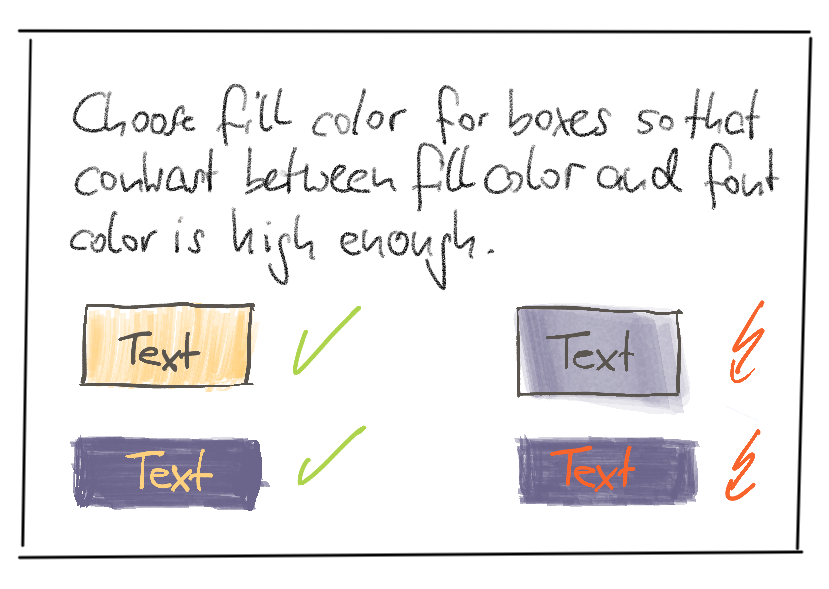 Choose fill color for boxes so that
contrast between fill color and font
color is high enough.
Text
Text
Text
Text